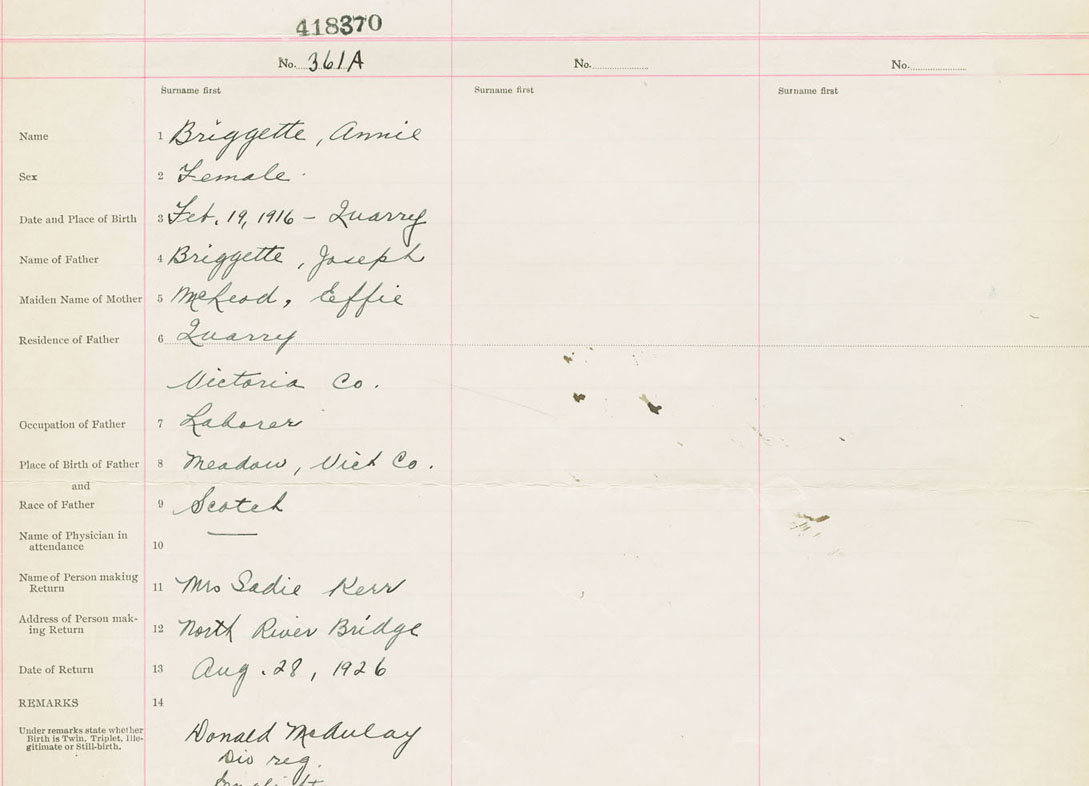 418370
No. 361A No. No.
Surname first Surname first Surname first
Name 1 Briggette, Annie
Sex 2 Female
Date and Place of Birth 3 Feb. 19, 1916 – Quarry
Name of Father 4 Briggette, Joseph
Maiden Name of Mother 5 McLeod, Effie
Residence of Father 6 Quarry
Victoria Co.
Occupation of Father 7 Laborer
Place of Birth of Father 8 Meadow, Vict Co.
and
Race of Father 9 Scotch
Name of Physician in
attendance 10 —
Name of Person making
Return 11 Mrs Sadie Kerr
Address of Person mak-
ing Return 12 North River Bridge
Date of Return 13 Aug. 28, 1926
REMARKS 14
Under remarks state whether
Birth is Twin, Triplet, Ille-
gitimate or Still-birth.
Donald McAulay
Div reg.